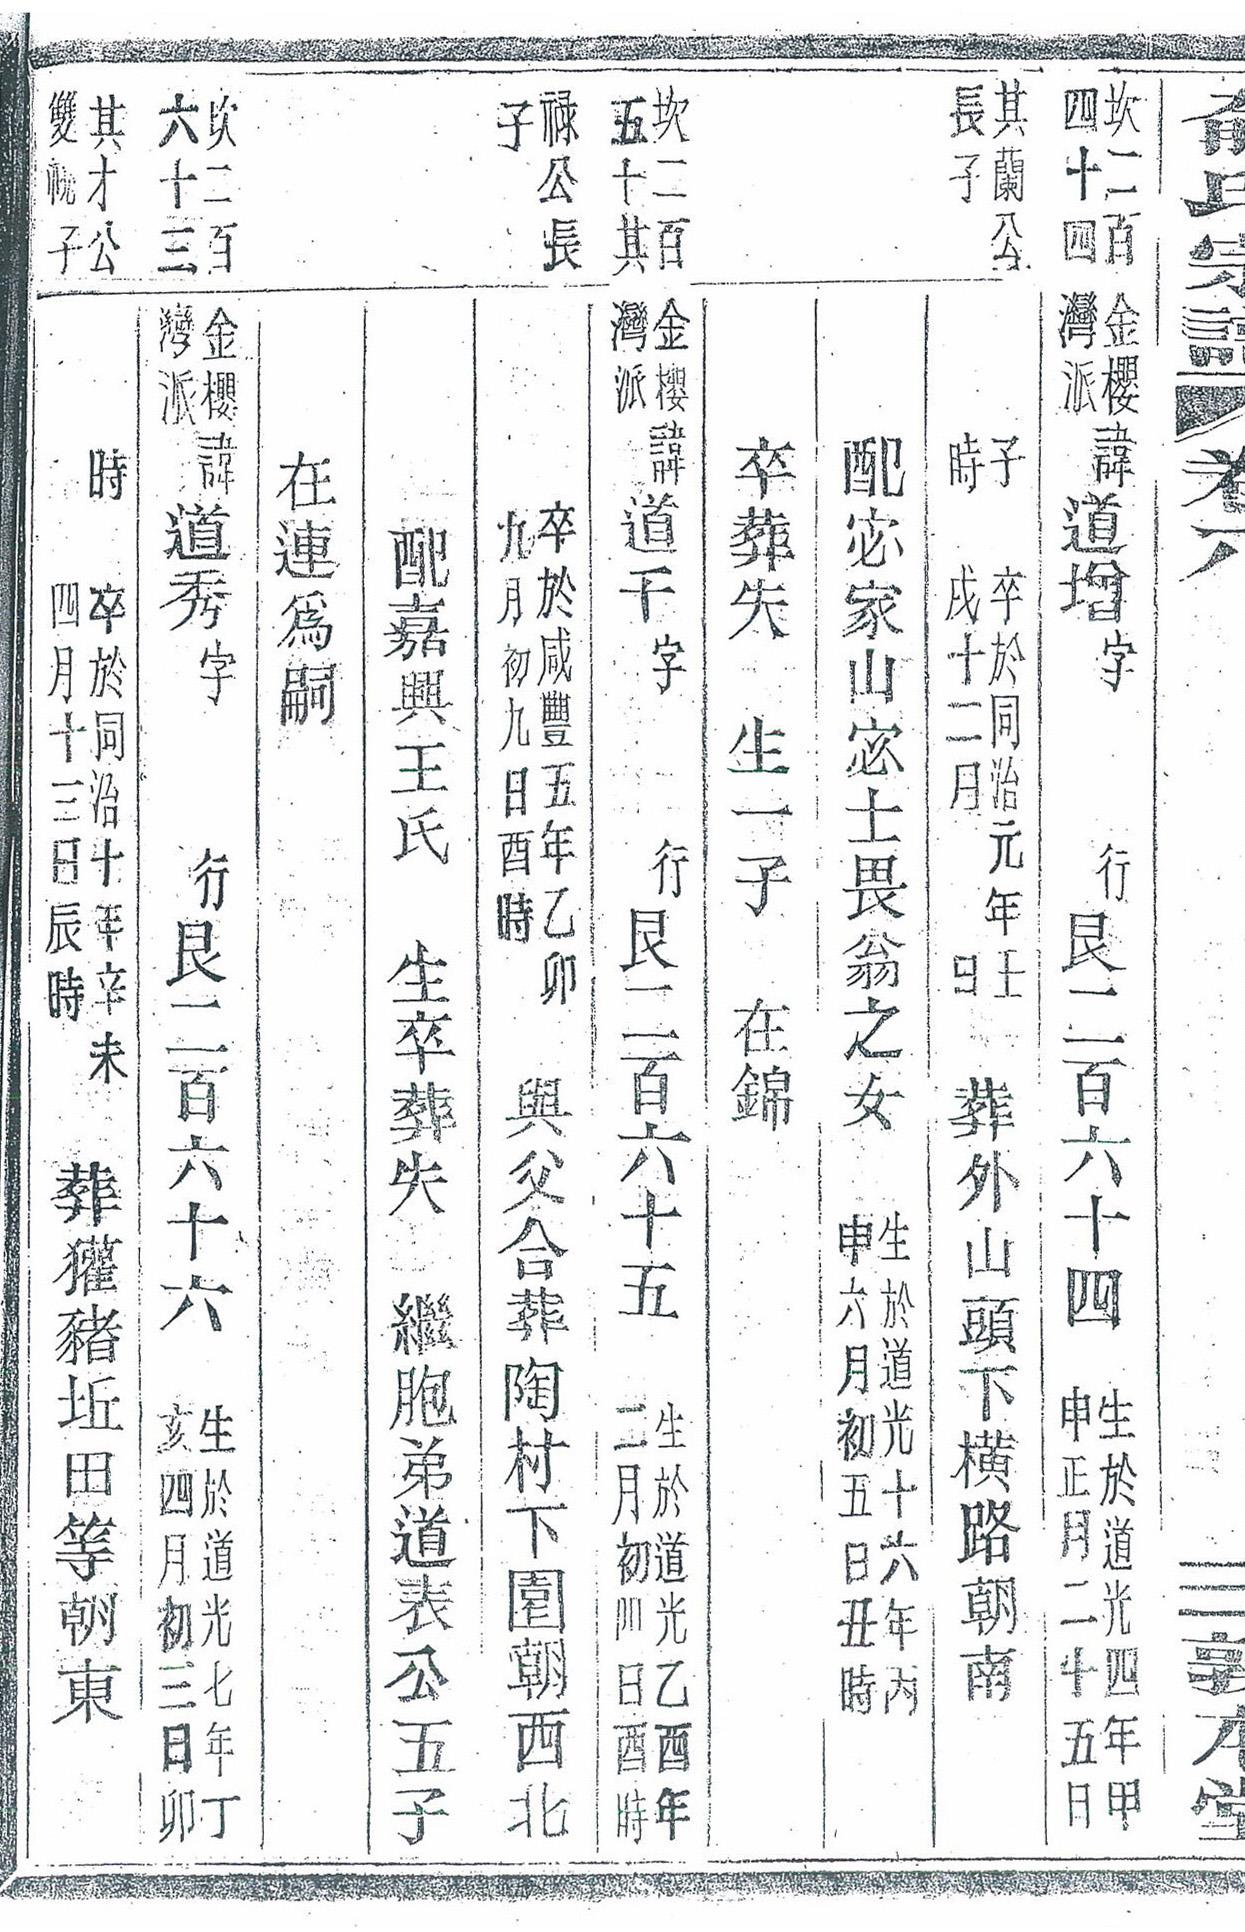 俞氏宗譜 卷八 三 敦本堂
坎二百
四十四
金櫻
灣派
諱道增字 行艮二百六十四
生於道光四年甲
申正月二十五日
其蘭公
長子
子
時
卒於同治元年壬
戌十二月 日
葬外山頭下橫路朝南
配宓家山宓士畏翁之女
生於道光十六年丙
申六月初五日丑時
卒葬失 生一子 在錦
坎二百
五十其
金櫻
灣派
諱道千字 行艮二百六十五
生於道光乙酉年
二月初四日酉時
祿公長
子
卒於咸豐五年乙卯
九月初九日酉時
與父合葬陶村下園朝西北
配嘉興王氏 生卒葬失 繼胞弟道表公五子
在連為嗣
坎二百
六十三
金櫻
灣派
諱道秀字 行艮二百六十六
生於道光七年丁
亥四月初三日卯
其才公
雙祧子
時
卒於同治十年辛未
四月十三日辰時
葬獾豬坵田等朝東